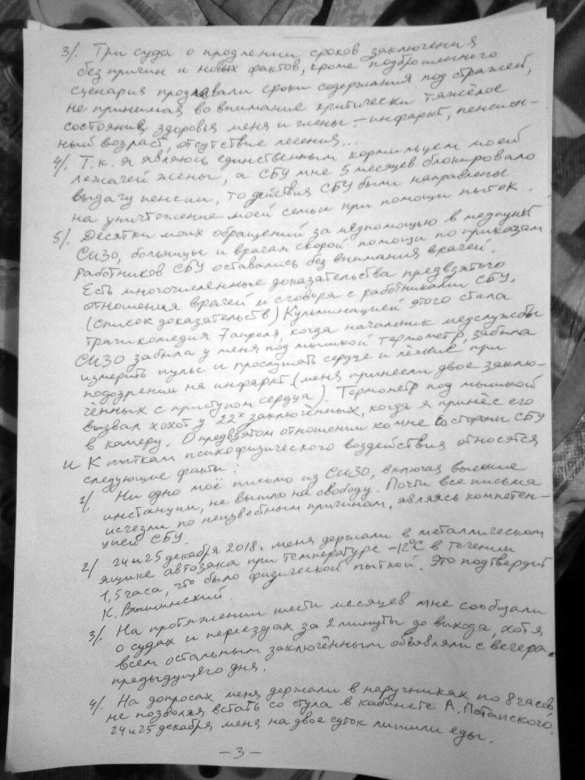 3/. Три суда о продлении сроков заключения
без причин и новых фактов, кроме подброшенного
сценария продлевали сроки содержания под стражей,
не принимая во внимание критически тяжёлое
состояние здоровья меня и жены – инфаркт, пенсион-
ный возраст, отсутствие лечения...
4/. Т.к. я являюсь единственным кормильцем моей
лежачей жены, а СБУ мне 5 месяцев блокировало
выдачу пенсии, то действия СБУ были направлены
на уничтожение моей семьи при помощи пыток.
5/. Десятки моих обращений за медпомощью в медпункт
СИЗО, больницы и врачам скорой помощи по приказам
работников СБУ оставались без внимания врачей.
Есть многочисленные доказательства предвзятого
отношения врачей и сговора с работниками СБУ.
(список доказательств) Кульминацией этого стала
трагикомедия 7 апреля, когда начальник медслужбы
СИЗО забыла у меня под мышкой термометр, забыла
измерить пульс и прослушать сердце и лёгкие при
подозрении на инфаркт (меня принесли двое заклю-
чённых с приступом сердца). Термометр под мышкой
вызвал хохот у 22х заключённых, когда я принёс его
в камеру. О предвзятом отношении ко мне со стороны СБУ
и К пыткам психофизического воздействия относятся
следующие факты:
1/ Ни одно моё письмо из СИЗО, включая высшие
инстанции, не вышло на свободу. Почти все письма
исчезли по неизвестным причинам, являясь компетен-
цией СБУ.
2/ 24 и 25 декабря 2018г. меня держали в металлическом
ящике автозака при температуре –12°С в течении
1,5 часа, что было физической пыткой. Это подтвердит
К. Вышинский.
3/. На протяжении шести месяцев мне сообщали
о судах и переездах за 2 минуты до выхода, хотя
всем остальным заключённым объявляли с вечера
предыдущего дня.
4/. На допросах меня держали в наручниках по 8 часов
не позволяя встать со стула в кабинете А.
24 и 25 декабря меня на двое суток лишили еды.
– 3 –